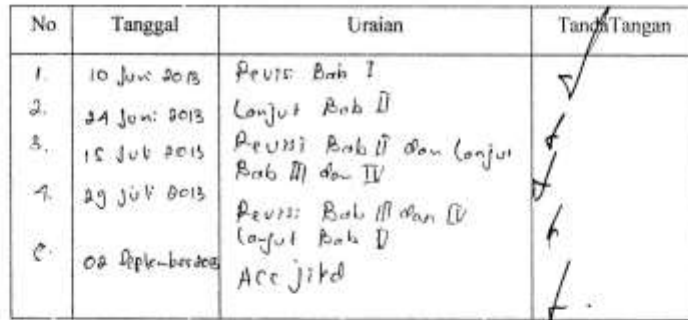 No Tanggal Uraian Tanda Tangan
1. 10 Juni 2013 Revisi Bab I
2. 24 Juni 2013 Lanjut Bab II
3. 15 Juli 2013 Revisi Bab II dan lanjut
Bab III dan IV
4. 29 Juli 2013
Revisi Bab III dan IV
lanjut Bab V
5. 02 September 2013
Acc jilid